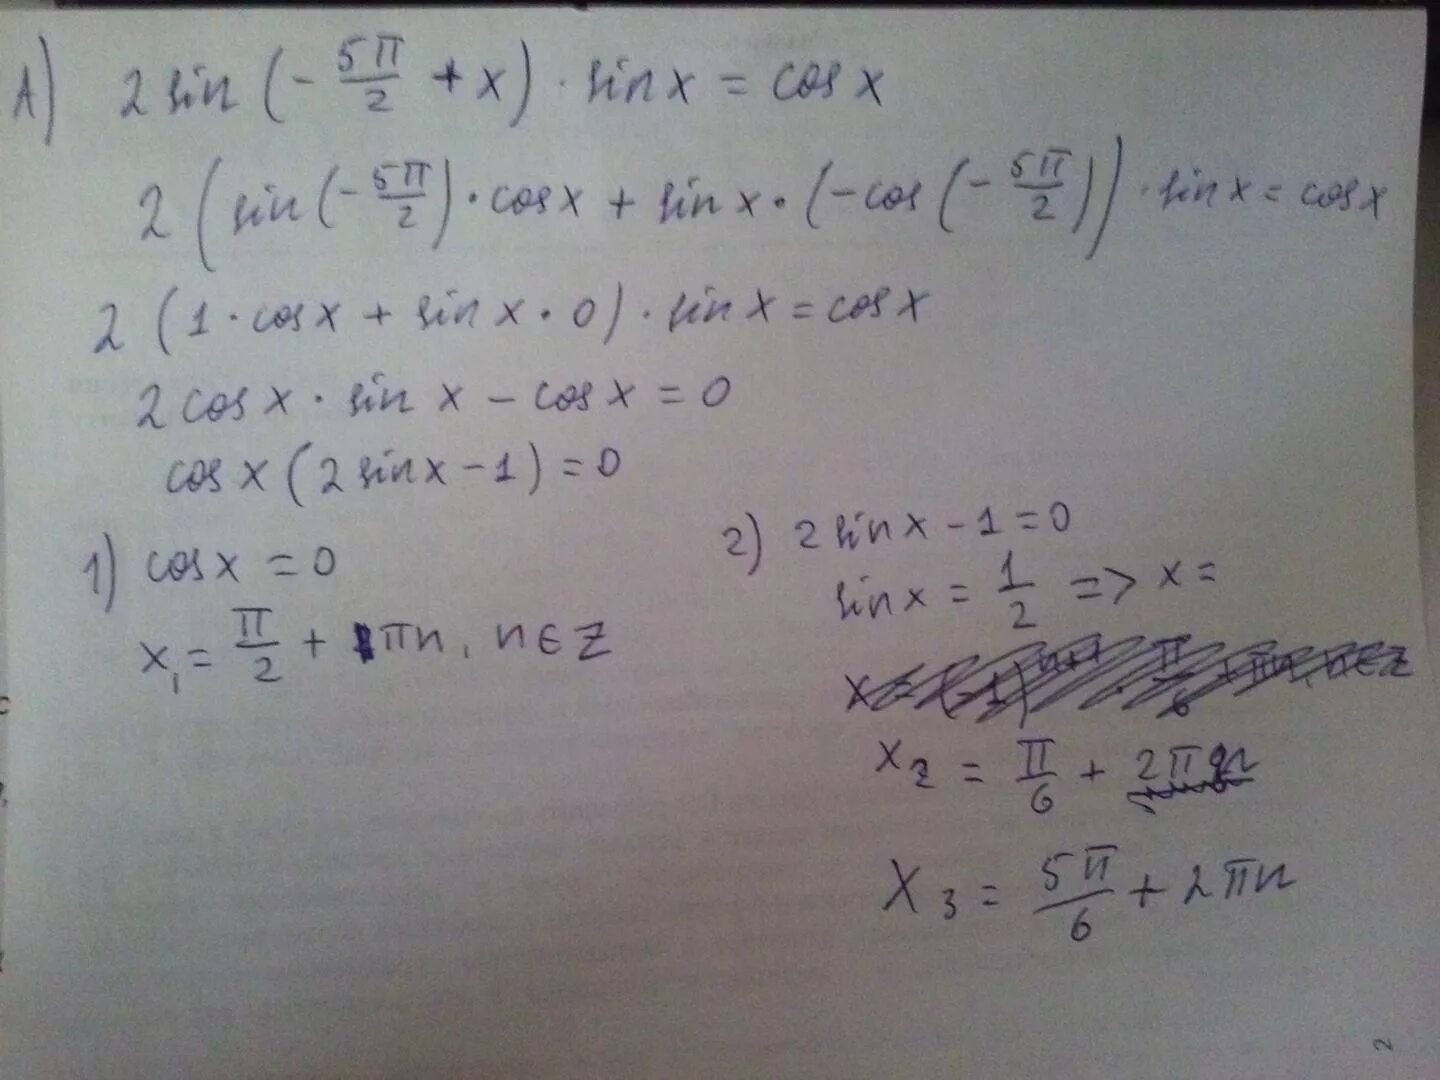 A) 2 sin (- 5π/2 + x) · sin x = cos x
2 (sin(- 5π/2) · cos x + sin x · (-cos (- 5π/2)) · sin x = cos x
2 (1 · cos x + sin x · 0) · sin x = cos x
2 cos x · sin x - cos x = 0
cos x (2 sin x - 1) = 0
1) cos x = 0
x₁ = π/2 + πn, n ∈ Z
2) 2 sin x - 1 = 0
sin x = 1/2 => x =
x = (-1)ⁿ⁺¹ · π/6 + πn, n ∈ Z
x₂ = π/6 + 2π
x₃ = 5π/6 + 2πn
2